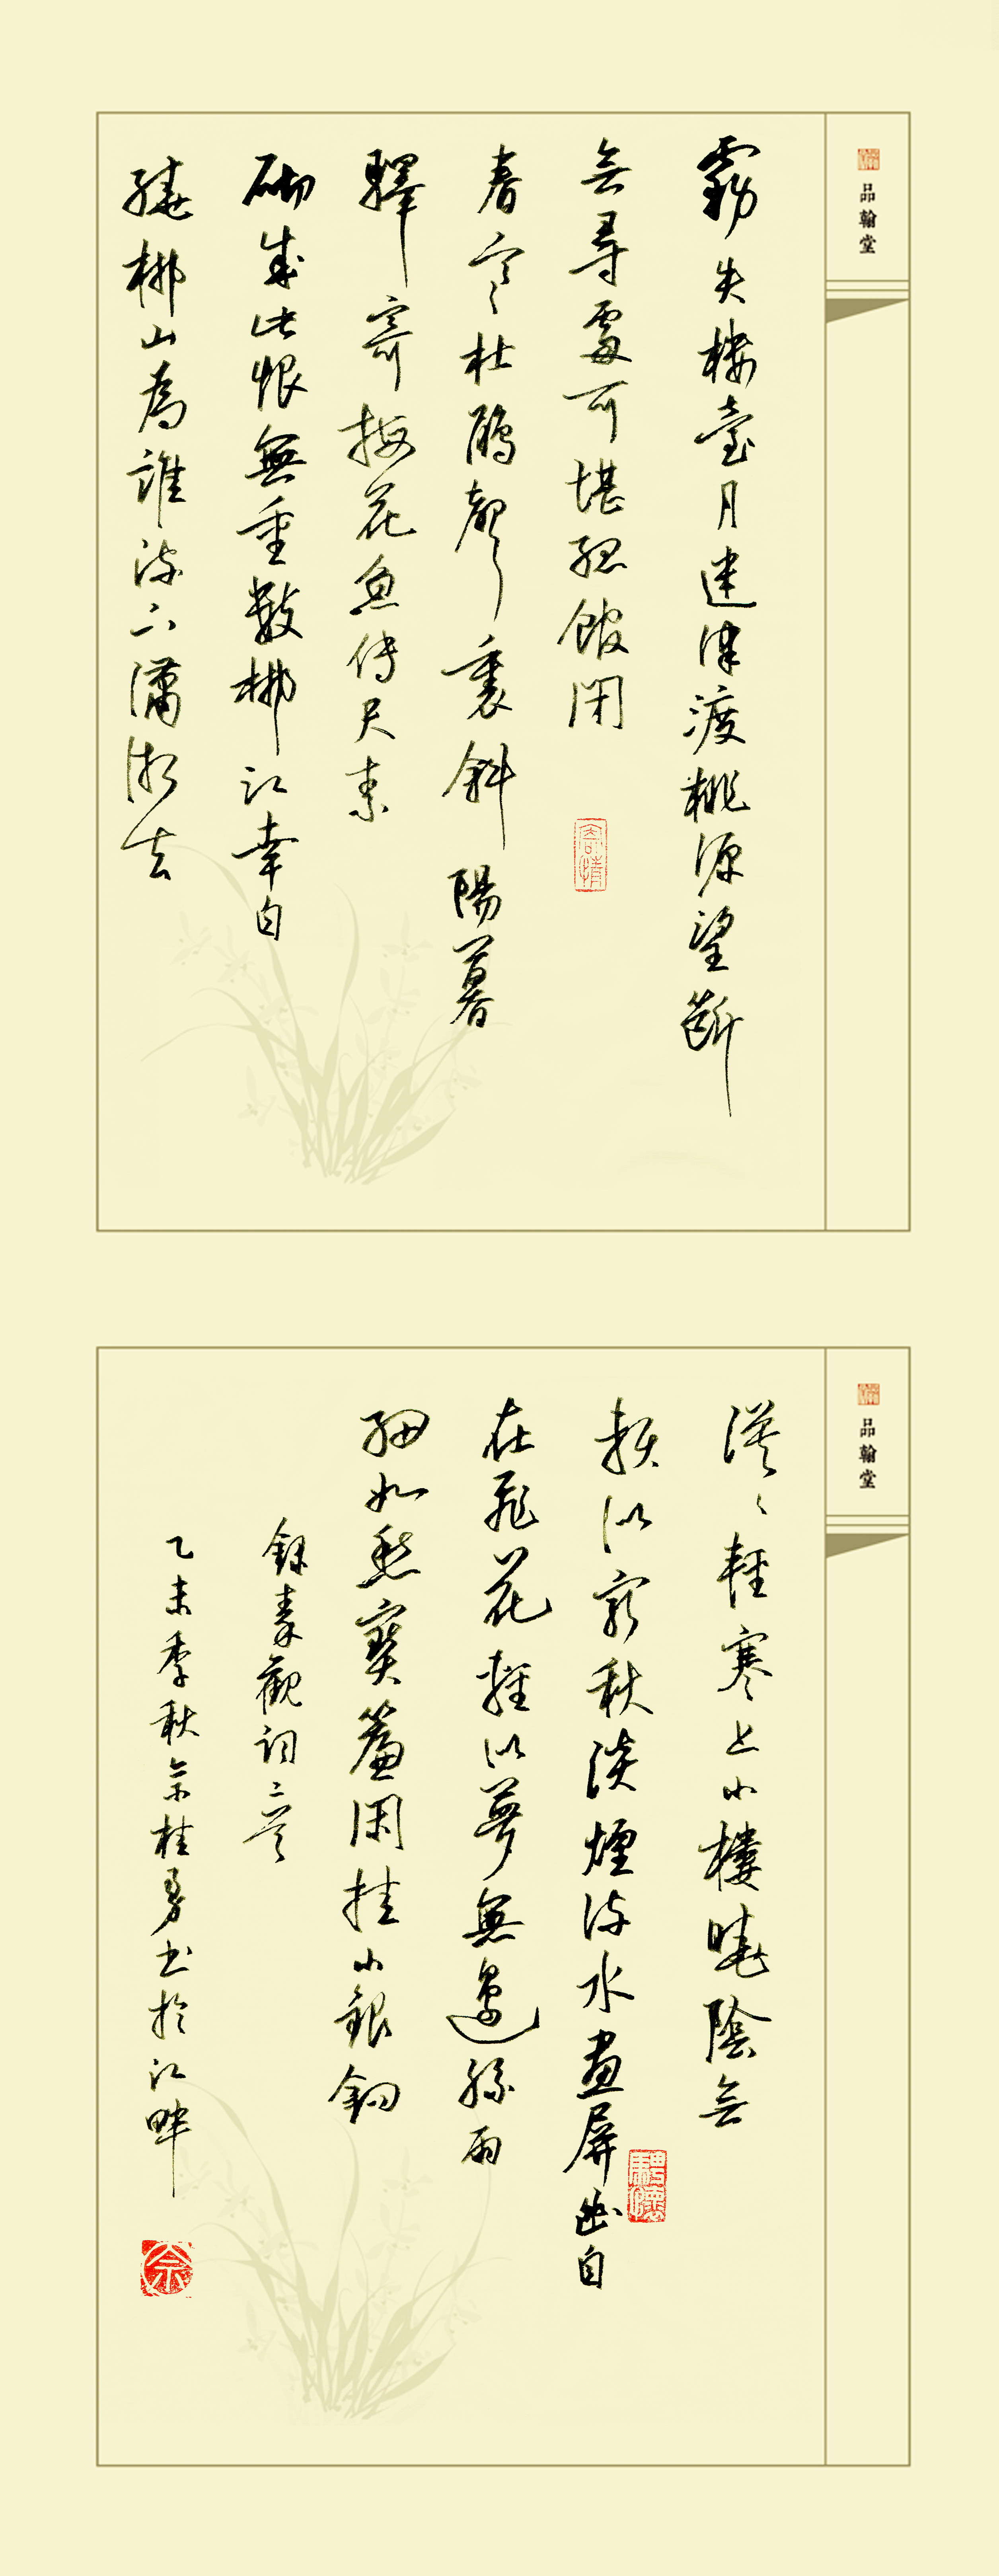 品翰堂
霧失樓臺月迷津渡桃源望斷
無尋處可堪孤館閉
寄情
春寒杜鵑聲裏斜陽暮
驛寄梅花魚傳尺素
砌成此恨無重數郴江幸自
繞郴山為誰流下瀟湘去
品翰堂
漠々輕寒上小樓曉陰無
賴似窮秋淡煙流水畫屏幽自
騁懷
在飛花輕似夢無邊絲雨
細如愁寶簾閑挂小銀鉤
錄秦觀詞二首
乙未季秋余桂勇书於江畔
余